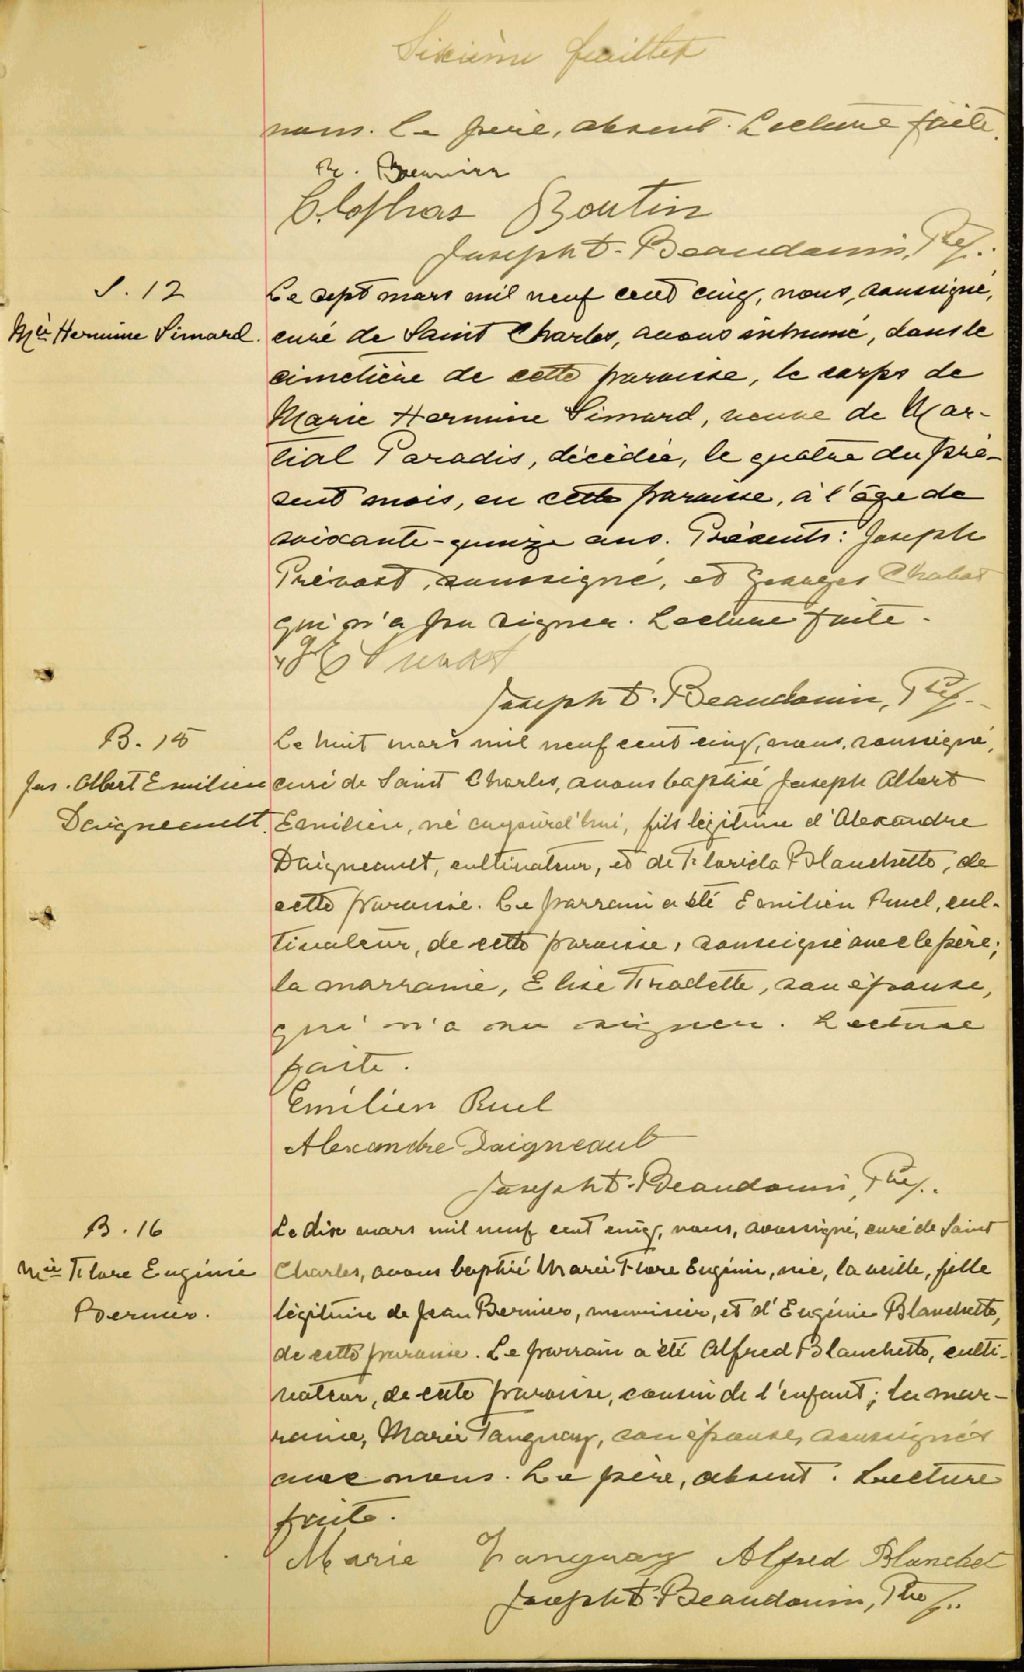 Sixième feuillet
nous. Le père, absent. Lecture faite.
Clophas Boutin
Joseph D. Beaudouin, Ptre.
S. 12
Mie Hermine Simard.
Le sept mars mil neuf cent cinq, nous, soussigné,
curé de Saint Charles, avons inhumé, dans le
cimetière de cette paroisse, le corps de
Marie Hermine Simard, veuve de Mar-
tial Paradis, décédée, le quatre du pré-
sent mois, en cette paroisse, à l'âge de
soixante-quinze ans. Présents: Joseph
Prévost, soussigné, et Georges Chabot
qui n'a pu signer. Lecture faite.
Joseph D. Beaudouin, Ptre.
B. 15
Jos. Albert Emilien
Daigneault.
Le huit mars mil neuf cent cinq, nous, soussigné,
curé de Saint Charles, avons baptisé Joseph Albert
Emilien, né aujourd'hui, fils légitime d'Alexandre
Daigneault, cultivateur, et de Florida Blanchette, de
cette paroisse. Le parrain a été Emilien Ruel, cul-
tivateur, de cette paroisse, soussigné avec le père;
la marraine, Elise Fradette, son épouse,
qui n'a su signer. Lecture
faite.
Emilien Ruel
Alexandre Daigneault
Joseph D. Beaudouin, Ptre.
B. 16
Mie Flore Eugénie
Bernier.
Le dix mars mil neuf cent cinq, nous, soussigné, curé de Saint
Charles, avons baptisé Marie Flore Eugénie, née, la veille, fille
légitime de Jean Bernier, menuisier, et d'Eugénie Blanchette,
de cette paroisse. Le parrain a été Alfred Blanchette, culti-
vateur, de cette paroisse, cousin de l'enfant; la mar-
raine, Marie Tanguay, son épouse, soussignés
avec nous. Le père, absent. Lecture
faite.
Marie Tanguay Alfred Blanchet
Joseph D. Beaudouin, Ptre.